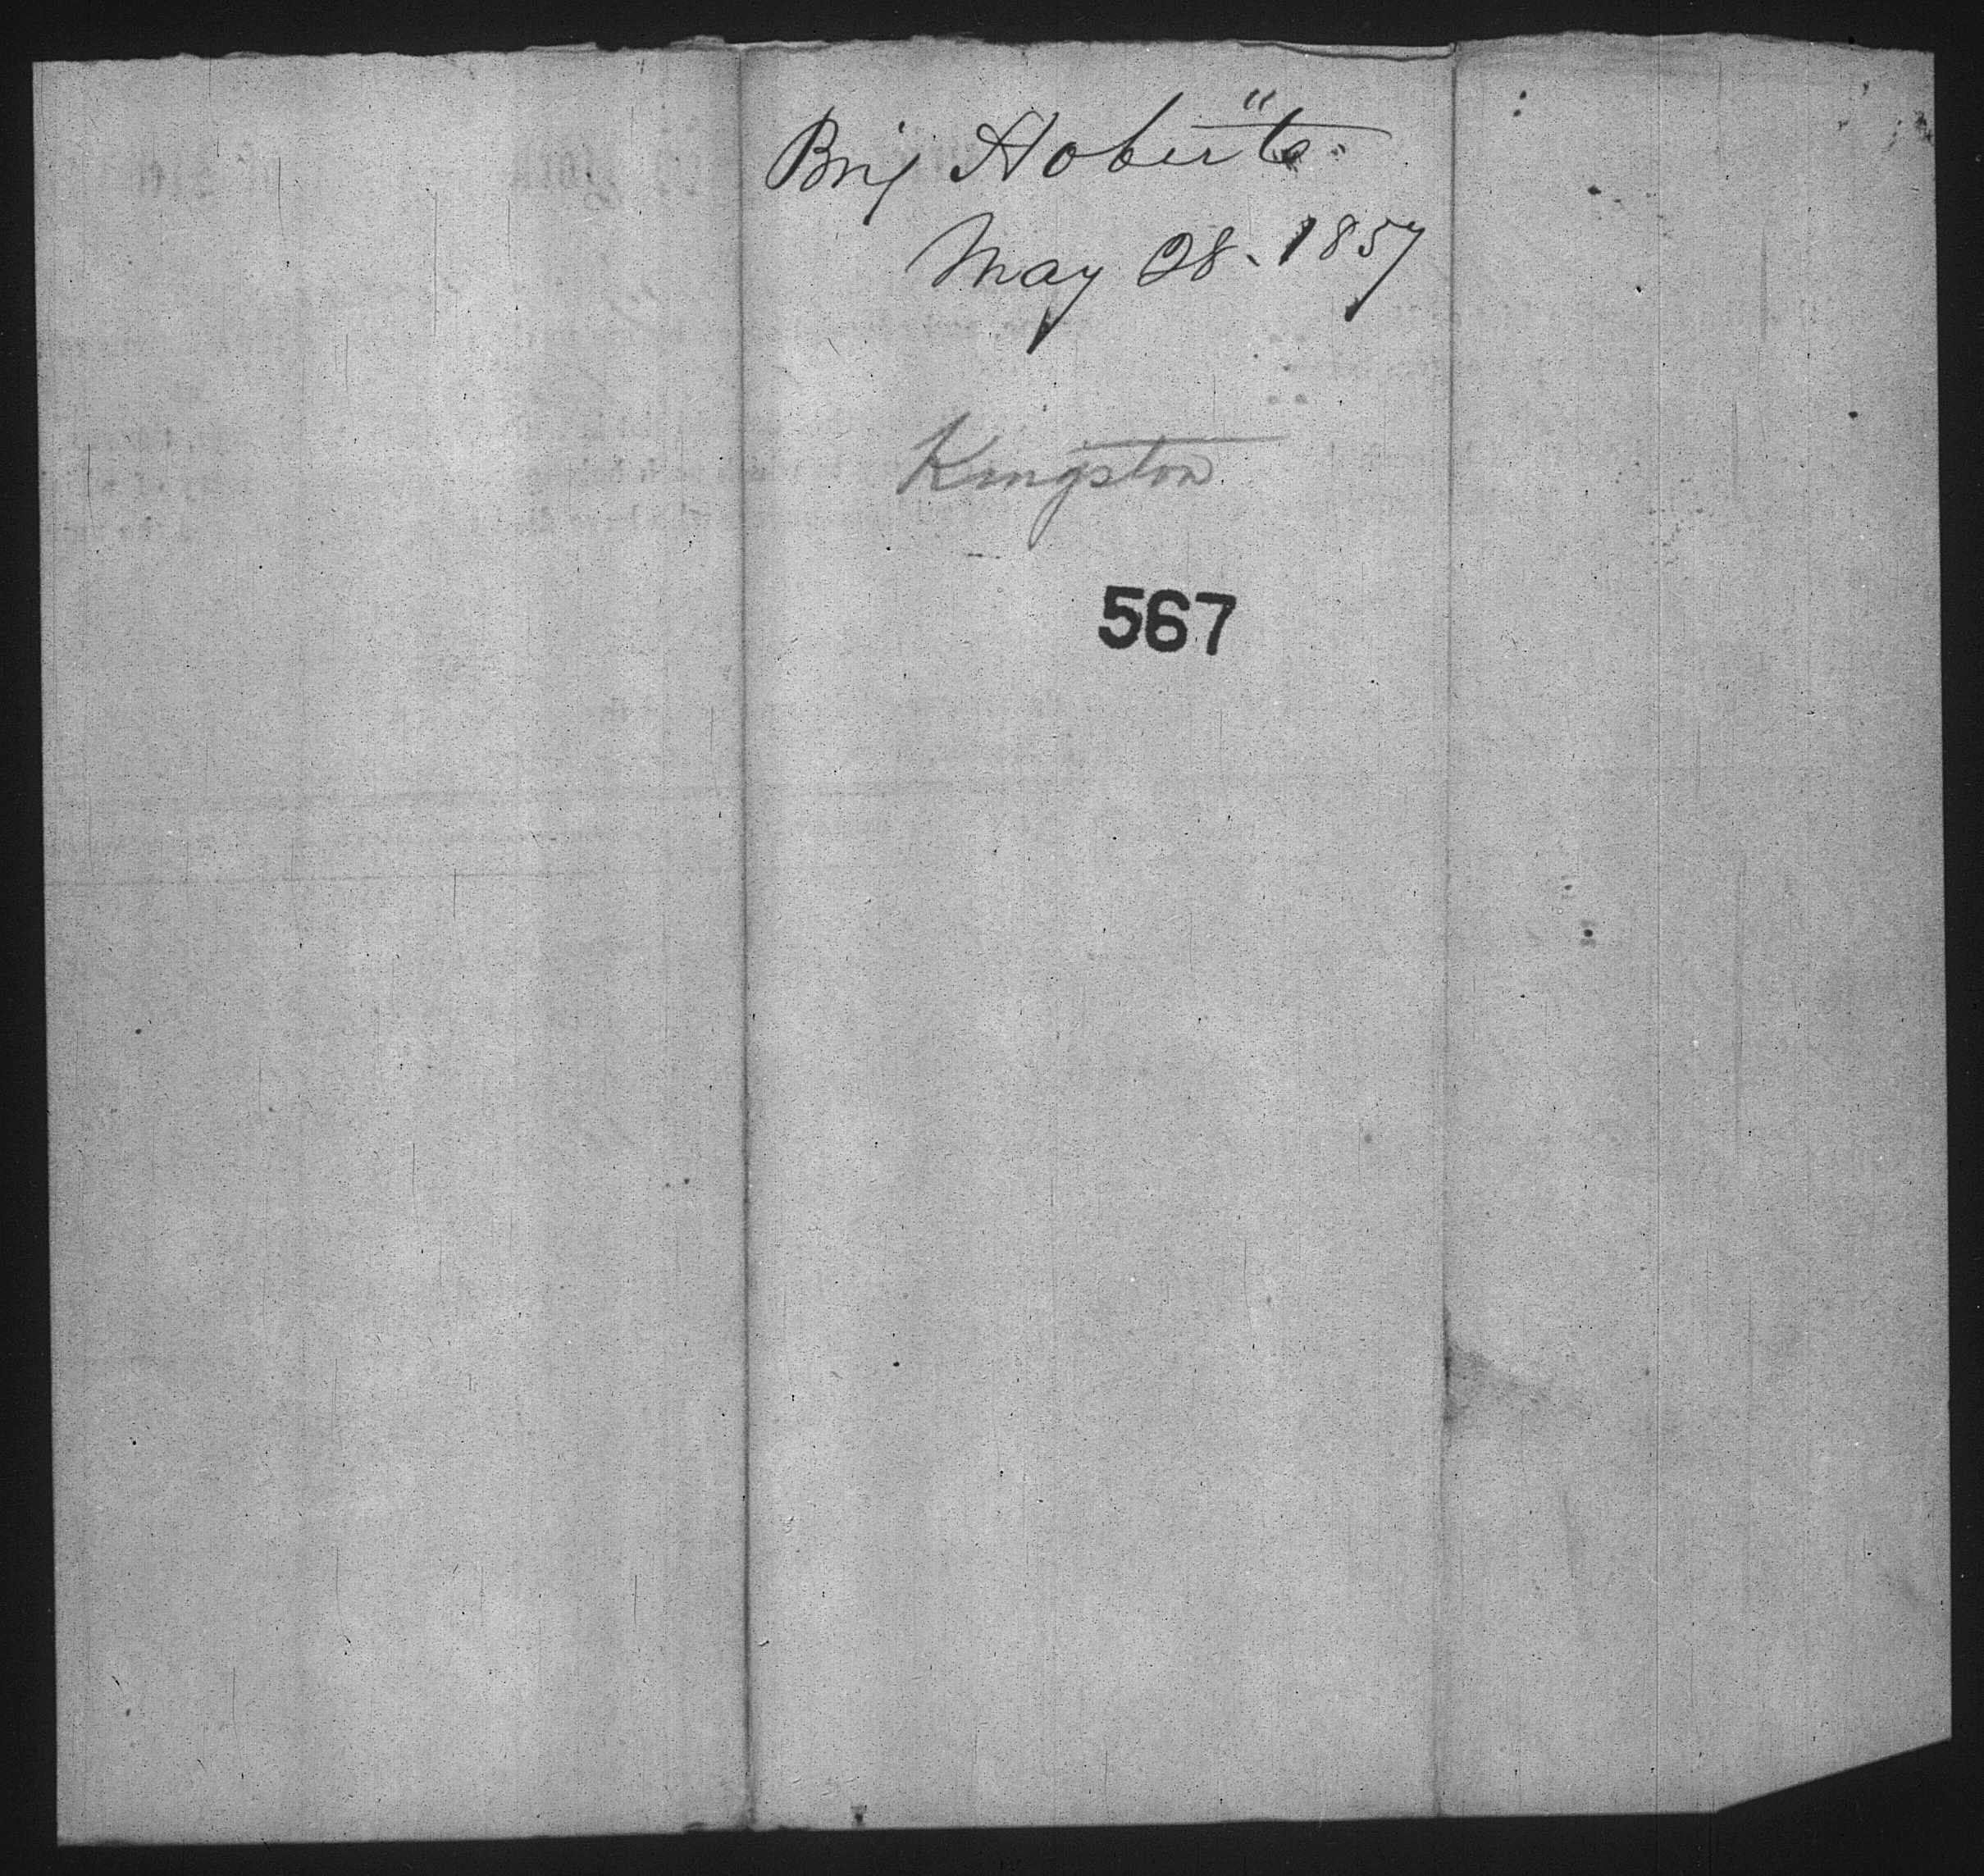 Brig Hoberta
May 28. 1857
Kingston
567